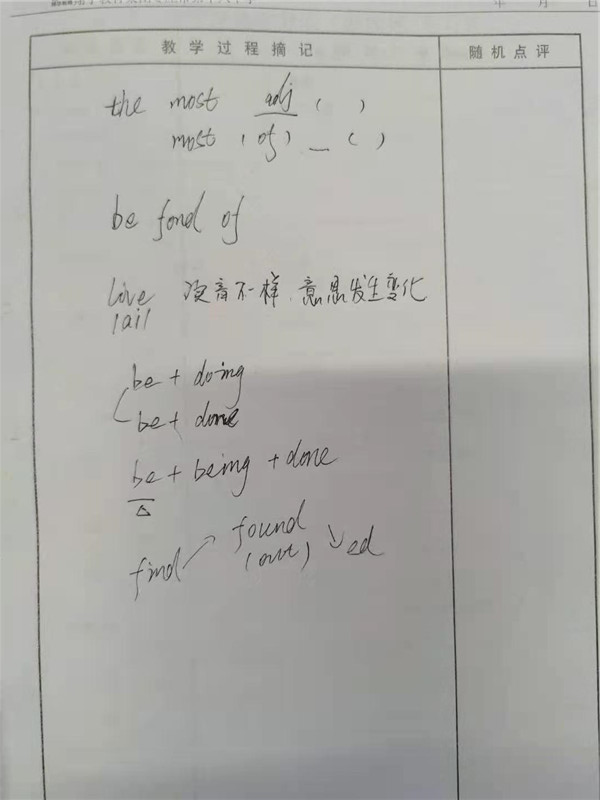 年 月 日
教学过程摘记 随机点评
the most adj ( )
most (of) _ ( )
be fond of
live 读音不一样,意思发生变化
/ai/
be + doing
be + done
be + being + done
find ↗ found ↘ ed
(out)